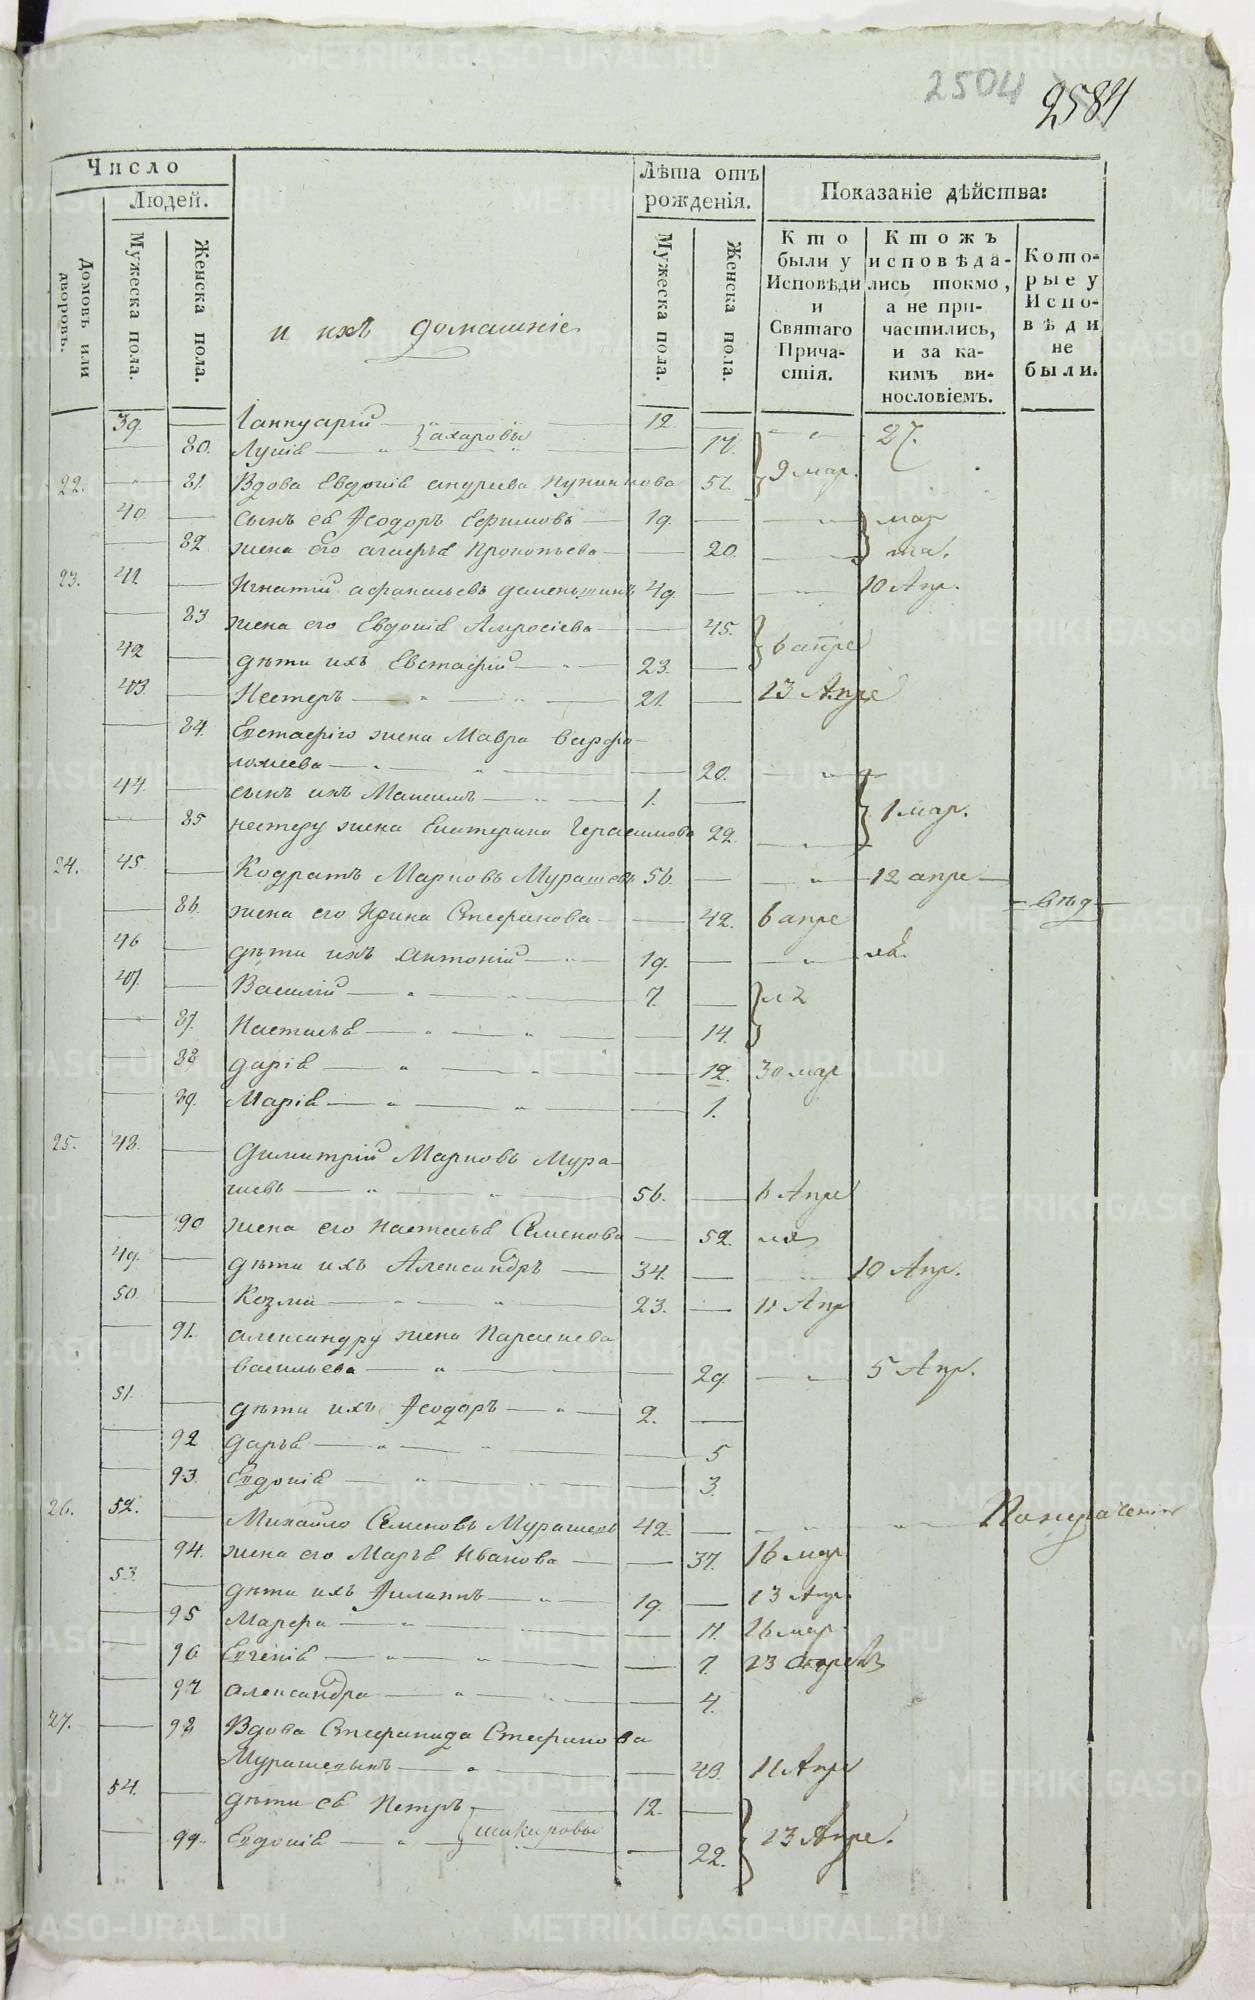 2504 2584
Число
Людей.
Домовъ или дворовъ.
Мужеска пола.
Женска пола.
и ихъ домашніе
Лѣта отъ рожденія.
Мужеска пола.
Женска пола.
Показаніе дѣйства:
Кто были у Исповѣди и Святаго Причастія.
Ктожъ исповѣдались токмо, а не причастились, и за какимъ винословіемъ.
Которые у Исповѣди не были.
39. Іаннуарій 12. 27.
80. Лукія Захаровы 17.
22. 81. Вдова Евдокія андреева 57. 9 мар.
40. сынъ ея Ѳеодоръ Ефимовъ 19. мар
82 жена его агафья Прокопьева 20. та.
23. 41. Игнатій афанасьевъ 49. 10 Апр.
83 жена его Евдокія Амвросіева 45. 6 апре
42 дѣти ихъ Евстафій 23.
43. Нестеръ 21. 13 Апре
84. Евстафію жена Мавра варфо
ломѣева 20.
44. сынъ ихъ Максимъ 1.
85 нестеру жена Екатерина Герасимова 22. 1 мар.
24. 45 Кодратъ Марковъ Мурашевъ 56. 12 апре
86. жена его Ирина Стефанова 42. 6 апре
46 дѣти ихъ Антоній 19.
47. Василій 7.
87. Настасья 14.
88 дарія 12. 30 мар
89. Марія 1.
25. 48. Димитрій Марковъ Мура
шевъ 56. 6 Апре
90 жена его Настасья Семенова 52.
49. дѣти ихъ Александръ 34. 10 Апр.
50. Козма 23. 11 Апр
91. александру жена Параскева
васильева 29. 5 Апр.
51. дѣти ихъ Ѳеодоръ 2.
92 дарья 5
93. Евдокія 3
26. 52. Михайло Семеновъ Мурашевъ 42.
94. жена его Марья Иванова 37. 16 мар.
53. дѣти ихъ Филиппъ 19. 13 Апр.
95 Марфа 11. 26 мар.
96 Евгенія 7. 13 апреля
97 александра 4.
27. 98 Вдова Стефанида Стефанова
Мурашевыхъ 43. 11 Апре
54. дѣти ея Петръ 12.
99. Евдокія 22. 13 Апре.
METRIKI.GASO-URAL.RU